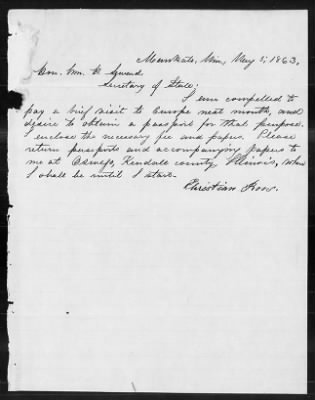 Mankato, Min, May 5, 1863.
Hon. Wm. H. Seward
Secretary of State;
I am compelled to
pay a brief visit to Europe next month, and
desire to obtain a passport for that purpose.
enclose the necessary fee and papers. Please
return passports and accompanying papers to
me at Oswego, Kendall county, Illinois, where
I shall be until I start.
Christian